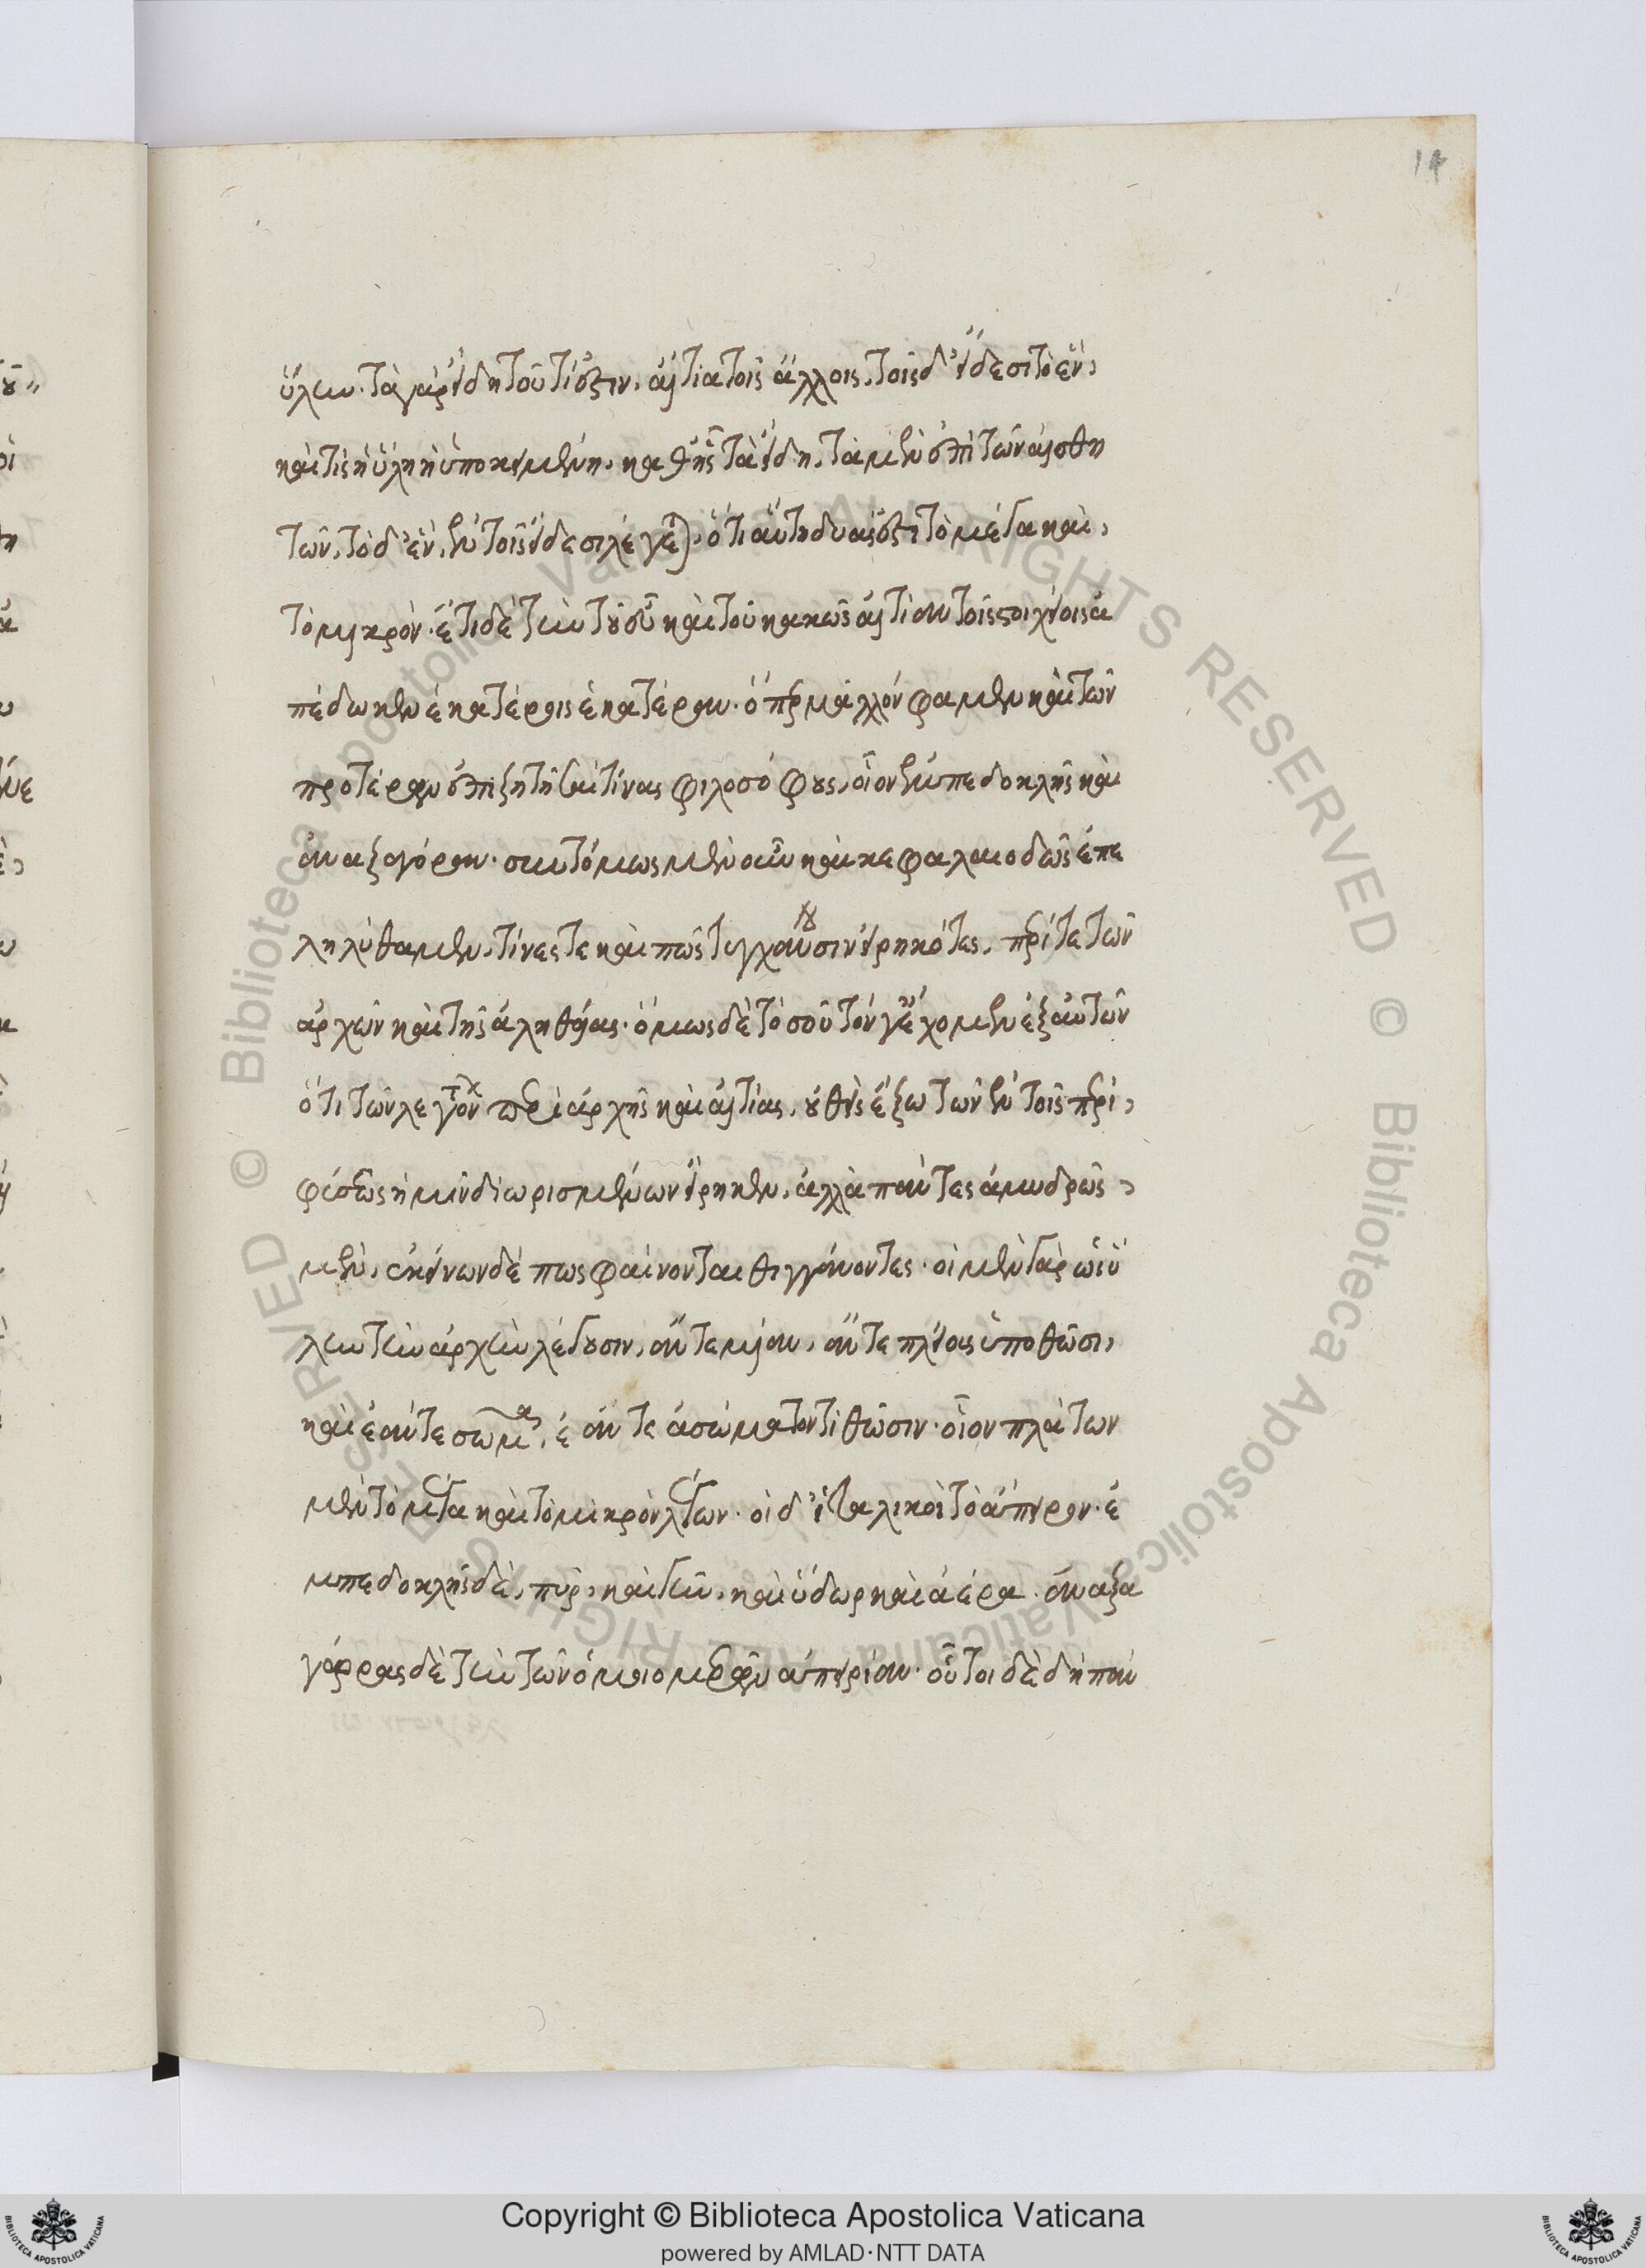 14
ὕλην. τὰ γὰρ εἴδη τοῦ τί ἐστιν, αἴτια τοῖς ἄλλοις. τοῖς δ' εἴδεσι τὸ ἕν,
καὶ τίς ἡ ὕλη ἡ ὑποκειμένη, καθ' ἧς τὰ εἴδη, τὰ μὲν ἐπὶ τῶν αἰσθη
τῶν, τὸ δ' ἓν, ἐν τοῖς εἴδεσι λέγεται, ὅτι αὕτη δυάς ἐστι τὸ μέγα καὶ,
τὸ μικρόν. ἔτι δὲ τὴν τοῦ εὖ καὶ τοῦ κακῶς αἰτίαν τοῖς στοιχείοις ἀ
πέδωκεν ἑκατέροις ἑκατέραν. ὅπερ μᾶλλόν φαμεν καὶ τῶν
προτέρων ἐπιζητῆσαί τινας φιλοσόφους, οἷον ἐμπεδοκλῆς καὶ
ἀναξαγόραν. συντόμως μὲν οὖν καὶ κεφαλαιοδῶς ἐπε
ληλύθαμεν, τίνες τε καὶ πῶς τυγχάνουσιν εἰρηκότες, περί τε τῶν
ἀρχῶν καὶ τῆς ἀληθείας. ὅμως δὲ τοσοῦτόν γ' ἔχομεν ἐξ αὐτῶν
ὅτι τῶν λεγόντων περὶ ἀρχῆς καὶ αἰτίας, οὐθεὶς ἔξω τῶν ἐν τοῖς περὶ,
φύσεως ἡμῖν διωρισμένων εἴρηκεν, ἀλλὰ πάντες ἀμυδρῶς,
μὲν, ἐκείνων δέ πως φαίνονται θιγγάνοντες. οἱ μὲν γὰρ ὡς ὕ
λην τὴν ἀρχὴν λέγουσιν, ἄν τε μίαν, ἄν τε πλείους ὑποθῶσι,
καὶ ἐάν τε σῶμα, ἐάν τε ἀσώματον τιθῶσιν. οἷον πλάτων
μὲν τὸ μέγα καὶ τὸ μικρὸν λέγων. οἱ δ' ἰταλικοὶ τὸ ἄπειρον. ἐ
μπεδοκλῆς δὲ, πῦρ, καὶ γῆν, καὶ ὕδωρ καὶ ἀέρα. ἀναξα
γόρας δὲ τὴν τῶν ὁμοιομερῶν ἀπειρίαν. οὗτοι δὲ δὴ πάν
Copyright © Biblioteca Apostolica Vaticana
powered by AMLAD·NTT DATA